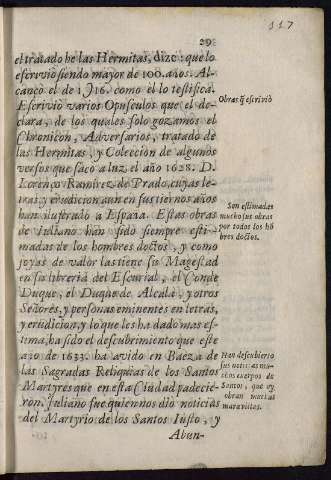 117
29
el tratado de las Hermitas, dize: que lo
escrivió siendo mayor de 100. años. Al-
cançó el de 1516. como el lo testifica.
Escrivió varios Opusculos que el de-
clara, de los quales solo gozamos el
Chronicon, Adversarios, tratado de
las Hermitas, y Coleccion de algunos
versos que sacò a luz el año 1628. D.
Lorenço Ramirez de Prado, cuyas le-
tras, y erudicion aun en sus tiernos años
han ilustrado a España. Estas obras
de Iuliano han sido siempre esti-
madas de los hombres doctos, y como
joyas de valor las tiene su Magestad
en su libreria del Escurial, el Conde
Duque, el Duque de Alcala, y otros
Señores, y personas eminentes en letras,
y erudicion, y lo que les ha dado mas es-
tima, ha sido el descubrimiento que este
año de 1633. ha avido en Baeza de
las Sagradas Reliquias de los Santos
Martyres que en esta Ciudad padecie-
ron. Iuliano fue quien nos dio noticias
del Martyrio de los Santos Iusto, y
Abun-
Obras q̃ escrivió
Son estimadas
mucho sus obras
por todos los hõ
bres doctos.
Han descubierto
sus noticias mu-
chos cuerpos de
Santos, que oy
obran muchas
maravillas.